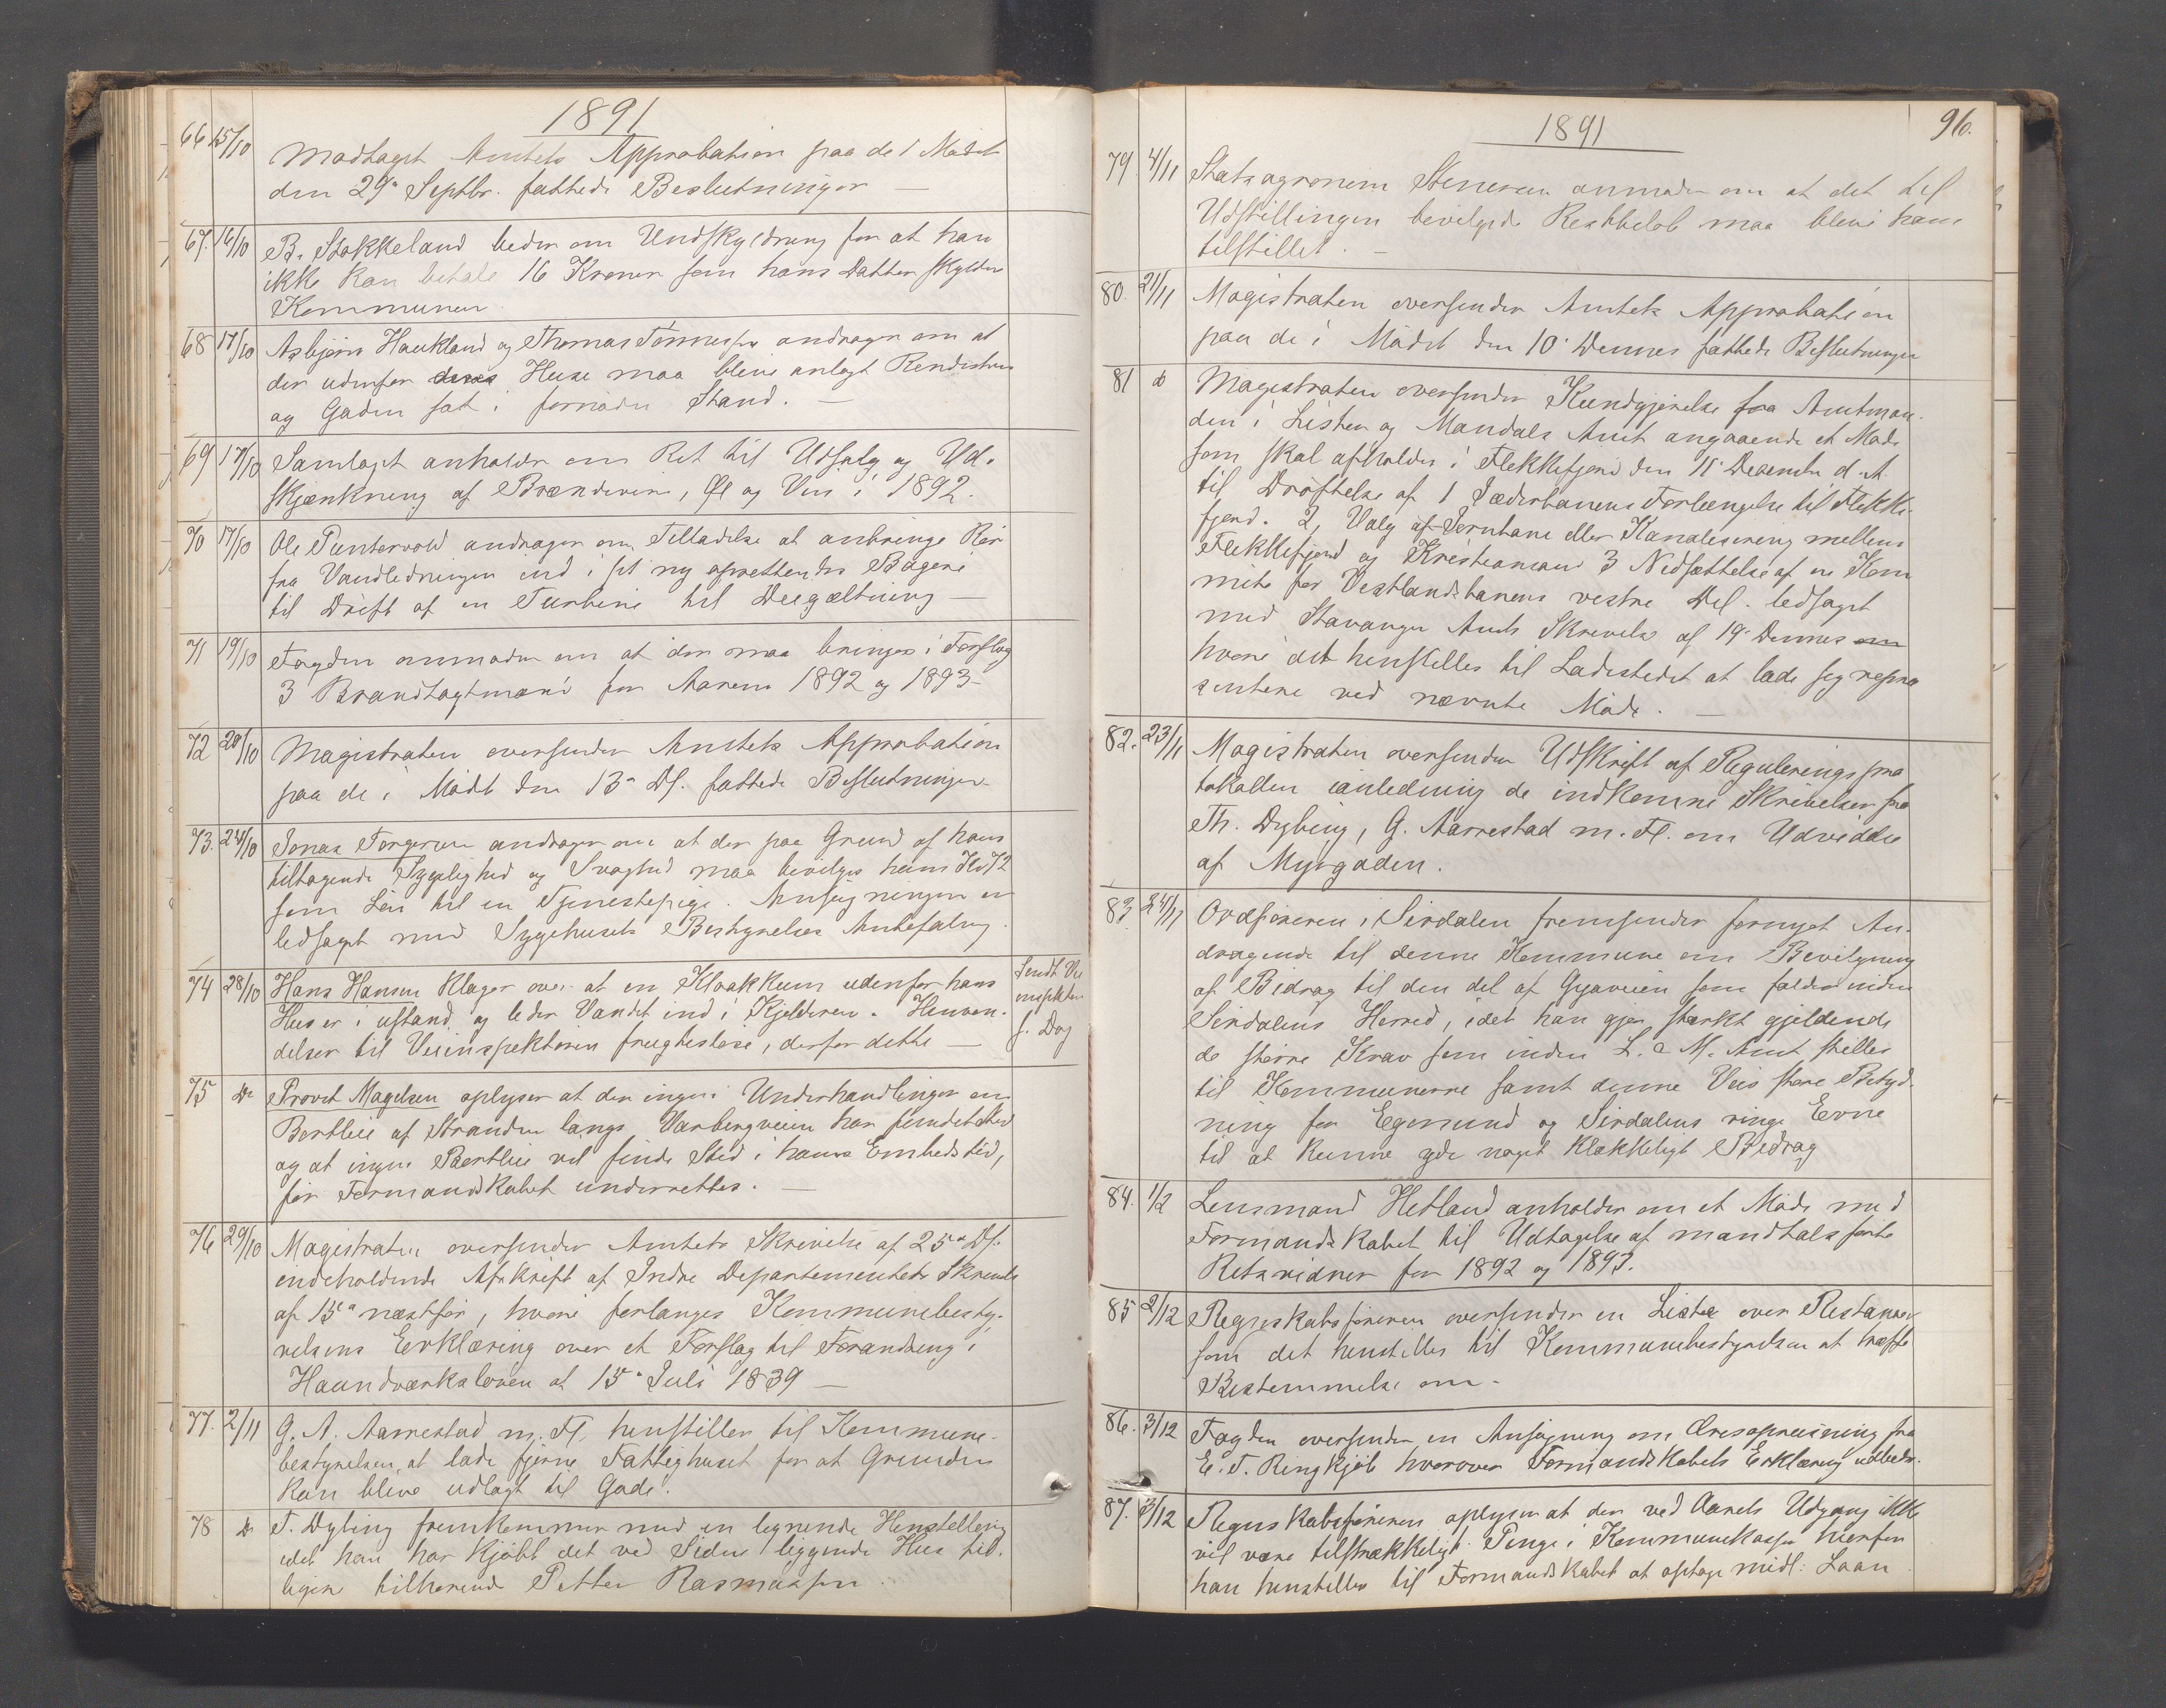 1891
66 15/10 Modtaget Amtets Approbation paa de i Mødet
den 29de Septbr. fattede Beslutninger
67. 16/10 B. Stokkeland beder om Undskyldning for at han
ikke kan betale 16 Kroner som hans Datter skylder
Kommunen
68 17/10 Asbjørn Haukland og Thomas Tønnessen andrager om at
der udenfor deres Huse maa blive anlagt Rendesten
og Gaden sat i fornøden Stand. —
69 17/10 Samlaget anholder om Ret til Udsalg og Ud-
skjænkning af Brændevin, Øl og Vin i 1892.
70 17/10 Ole Puntervold andrager om Tilladelse at anbringe Rør
fra Vandledningen ind i sit ny oprettendes Bageri
til Drift af en Turbine til Deigæltning —
71 19/10 Fogden anmoder om at der maa bringes i Forslag
3 Brandtagtmænd for Aarene 1892 og 1893
72 20/10 Magistraten oversender Amtets Approbation
paa de i Mødet den 13de Ds. fattede Beslutninger
73. 24/10 Jonas Torgersen andrager om at der paa Grund af hans
tiltagende Sygelighed og Svaghed maa bevilges ham Kr 72
som Løn til en Tjenestepige. Ansøgningen er
ledsaget med Sygehusets Bestyrelses Anbefaling.
74 28/10 Hans Hansen klager over at en Kloakkum udenfor hans
Hus er i ustand og leder Vandet ind i Kjelderen. Henven-
delser til Veiinspektøren frugtesløse, derfor dette —
Sendt Vei
inspektør
s. Dag
75 Do Provst Magelsen oplyser at der ingen Underhandlinger om
Bortleie af Stranden langs Varbergveien har fundet sted
og at ingen Bortleie vil finde Sted i hans Embedstid,
før Formandskabet underrettes. —
76 29/10 Magistraten oversender Amtets Skrivelse af 25de Ds.
indeholdende Afskrift af Indre Departementets Skrivelse
af 15de næstfør, hvori forlanges Kommunebesty-
relsens Erklæring over et Forslag til Forandring i
Haandværksloven af 15de Juli 1839 —
77. 2/11 G. A. Aarrestad m. Fl. henstiller til Kommune-
bestyrelsen, at lade fjerne Fattighuset for at Grunden
kan blive udlagt til Gade.
78 Do T. Dybing fremkommer med en lignende Henstilling
idet han har kjøbt det ved Siden liggende Hus tid-
ligere tilhørende Petter Rasmussen.
1891
96.
79. 4/11 Statsagronom Stenersen anmoder om at det til
Udstillingen bevilgede Restbeløb maa blive ham
tilstillet. —
80. 21/11 Magistraten oversender Amtets Approbation
paa de i Mødet den 10de Dennes fattede Beslutninger
81 do Magistraten oversender Kundgjørelse fra Amtman-
den i Lister og Mandals Amt angaaende et Møde
som skal afholdes i Flekkefjord den 11te December d. A.
til Drøftelse af 1 Jæderbanens Forlængelse til Flekke-
fjord. 2, Valg af Jernbane eller Kanalisering mellem
Flekkefjord og Kristiansand 3 Nedsættelse af en Kom
mite for Vestlandsbanens vestre Del. ledsaget
med Stavanger Amts Skrivelse af 19de Dennes om
hvori det henstilles til Ladestedet at lade seg repræ
sentere ved nævnte Møde. —
82. 23/11 Magistraten oversender Udskrift af Reguleringspro
tokollen ianledning de indkomne Skrivelser fra
Th. Dybing, G. Aarrestad m. Fl. om Udvidelse
af Myrgaden.
83. 24/11 Ordføreren i Sirdalen fremsender fornyet An-
dragende til denne Kommune om Bevilgning
af Bidrag til den del af Gyaveien som falder inden
Sirdalens Herred, idet han gjør stærkt gjeldende
de større Krav som inden L. & M. Amt stilles
til Kommunerne samt denne Veis store Betyd-
ning for Egersund og Sirdalens ringe Evne
til at kunne yde noget klækkeligt Bidrag
84. 1/2 Lensmand Hetland anholder om et Møde med
Formandskabet til Udtagelse af mandtalsførte
Retsvidner for 1892 og 1893.
85 2/12 Regnskabsføreren oversender en Liste over Restancer
som det henstilles til Kommunebestyrelsen at træffe
Bestemmelse om.
86. 3/12 Fogden oversender en Ansøgning om Æresopreisning fra
E. T. Ringkjøb hvorover Formandskabets Erklæring udbedes.
87. 3/12 Regnskabsføreren oplyser at der ved Aarets Udgang ikke
vil være tilstrækkeligt Penge i Kommunekassen hvorfor
han henstiller til Formandskabet at optage midl: Laan